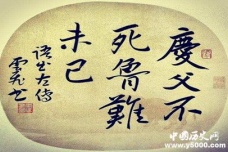 慶父不
死魯難
未已
語出左傳
中国历史网
www.y5000.com